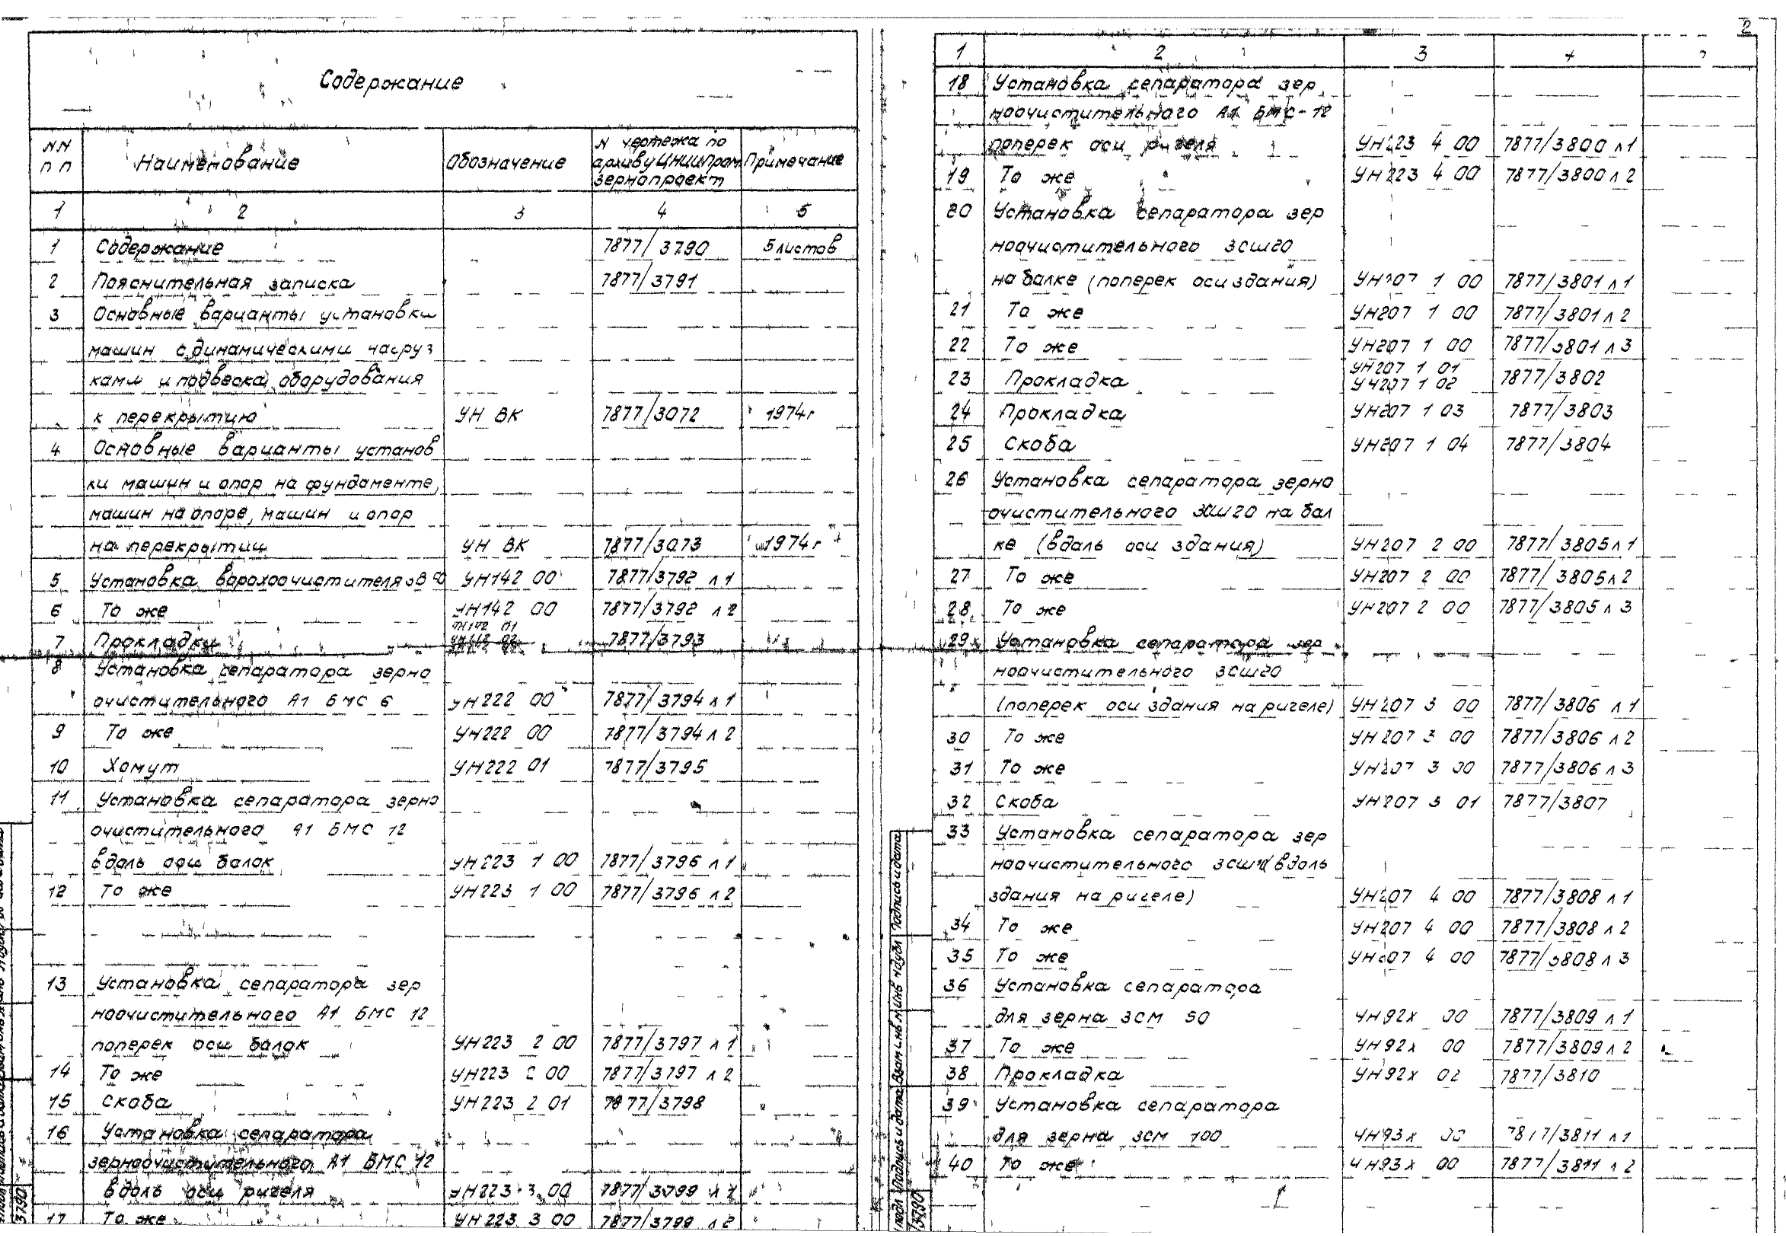 Содержание
NN
пп
Наименование
Обозначение
N чертежа по
архиву ЦНИИпром
зернопроект
Примечание
1 2 3 4 5
1 Содержание 7877/3790 5 листов
2 Пояснительная записка 7877/3791
3 Основные варианты установки
машин с динамическими нагруз
ками и подвеска оборудования
к перекрытию УН ВК 7877/3072 1974г
4 Основные варианты установ
ки машин и опор на фундаменте,
машин на опоре, машин и опор
на перекрытии УН ВК 7877/3073 1974г
5 Установка ворохоочистителя УН142 00 7877/3792 л1
6 То же УН142 00 7877/3792 л2
7 Прокладки 7877/3793
8 Установка сепаратора зерно
очистительного А1 БМС 6 УН222 00 7877/3794 л1
9 То же УН222 00 7877/3794 л2
10 Хомут УН222 01 7877/3795
11 Установка сепаратора зерно
очистительного А1 БМС 12
вдоль оси балок УН223 1 00 7877/3796 л1
12 То же УН223 1 00 7877/3796 л2
13 Установка сепаратора зер
ноочистительного А1 БМС 12
поперек оси балок УН223 2 00 7877/3797 л1
14 То же УН223 2 00 7877/3797 л2
15 Скоба УН223 2 01 7877/3798
16 Установка сепаратора
зерноочистительного А1 БМС 12
вдоль оси ригеля УН223 3 00 7877/3799 л1
17 То же УН223 3 00 7877/3799 л2
3790
2
1 2 3 4
18 Установка сепаратора зер
ноочистительного А1 БМС-12
поперек оси ригеля УН223 4 00 7877/3800 л1
19 То же УН223 4 00 7877/3800 л2
20 Установка сепаратора зер
ноочистительного ЗСШ20
на балке (поперек оси здания) УН207 1 00 7877/3801 л1
21 То же УН207 1 00 7877/3801 л2
22 То же УН207 1 00 7877/3801 л3
23 Прокладка УН207 1 01
УН207 1 02 7877/3802
24 Прокладка УН207 1 03 7877/3803
25 Скоба УН207 1 04 7877/3804
26 Установка сепаратора зерно
очистительного ЗСШ20 на бал
ке (вдоль оси здания) УН207 2 00 7877/3805 л1
27 То же УН207 2 00 7877/3805 л2
28 То же УН207 2 00 7877/3805 л3
29 Установка сепаратора зер
ноочистительного ЗСШ20
(поперек оси здания на ригеле) УН207 3 00 7877/3806 л1
30 То же УН207 3 00 7877/3806 л2
31 То же УН207 3 00 7877/3806 л3
32 Скоба УН207 3 01 7877/3807
33 Установка сепаратора зер
ноочистительного ЗСШ (вдоль
здания на ригеле) УН207 4 00 7877/3808 л1
34 То же УН207 4 00 7877/3808 л2
35 То же УН207 4 00 7877/3808 л3
36 Установка сепаратора
для зерна ЗСМ 50 УН92х 00 7877/3809 л1
37 То же УН92х 00 7877/3809 л2
38 Прокладка УН92х 02 7877/3810
39 Установка сепаратора
для зерна ЗСМ 100 УН93х 00 7877/3811 л1
40 То же УН93х 00 7877/3811 л2
Подпись и дата
Подпись и дата
3790